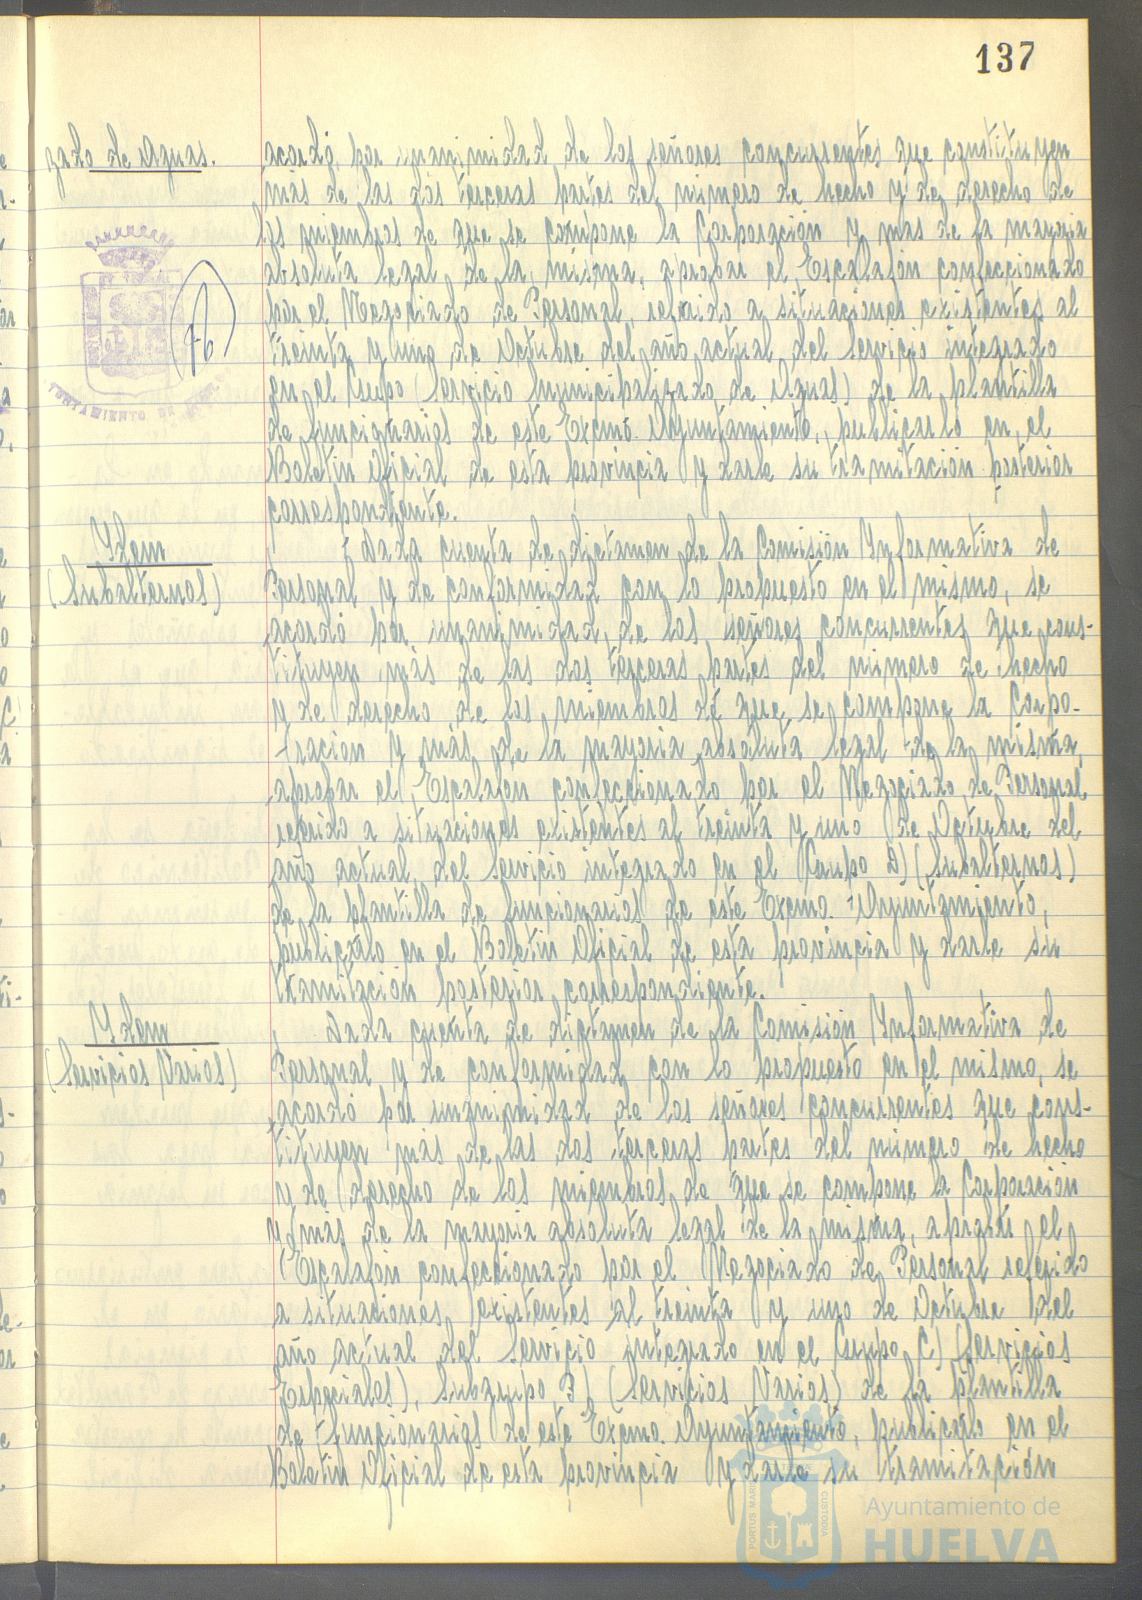 137
zado de Aguas.
acordó, por unanimidad, de los señores concurrentes que constituyen
más de las dos terceras partes del número de hecho y de derecho de
los miembros de que se compone la Corporación y más de la mayoria
absoluta legal de la misma, aprobar el Escalafón confeccionado
por el Negociado de Personal, referido a situaciones existentes al
treinta y uno de Octubre del año actual del Servicio integrado
en el Grupo (Servicio Municipalizado de Aguas) de la plantilla
de funcionarios de este Excmo. Ayuntamiento, publicarlo en el
Boletín Oficial de esta provincia y darle su tramitación posterior
correspondiente.
AYUNTAMIENTO DE
Idem
(Subalternos)
Dada cuenta de dictamen de la Comisión Informativa de
Personal y de conformidad con lo propuesto en el mismo, se
acordó por unanimidad, de los señores concurrentes que cons-
tituyen más de las dos terceras partes del número de hecho
y de derecho de los miembros de que se compone la Corpo-
ración y más de la mayoria absoluta legal de la misma,
aprobar el Escalafón confeccionado por el Negociado de Personal
referido a situaciones existentes al treinta y uno de Octubre del
año actual del Servicio integrado en el Grupo D) (Subalternos)
de la plantilla de funcionarios de este Excmo. Ayuntamiento,
publicarlo en el Boletín Oficial de esta provincia y darle su
tramitación posterior correspondiente.
Idem
(Servicios Varios)
Dada cuenta de dictamen de la Comisión Informativa de
Personal y de conformidad con lo propuesto en el mismo, se
acordó por unanimidad de los señores concurrentes que cons-
tituyen más de las dos terceras partes del número de hecho
y de derecho de los miembros de que se compone la Corporación
y más de la mayoria absoluta legal de la misma, aprobar el
Escalafón confeccionado por el Negociado de Personal referido
a situaciones existentes al treinta y uno de Octubre del
año actual del Servicio integrado en el Grupo C) (Servicios
Especiales), Subgrupo (Servicios Varios) de la plantilla
de funcionarios de este Excmo. Ayuntamiento, publicarlo en el
Boletín Oficial de esta provincia y darle su tramitación
PORTUS MARIS
CUSTODIA
Ayuntamiento de
HUELVA